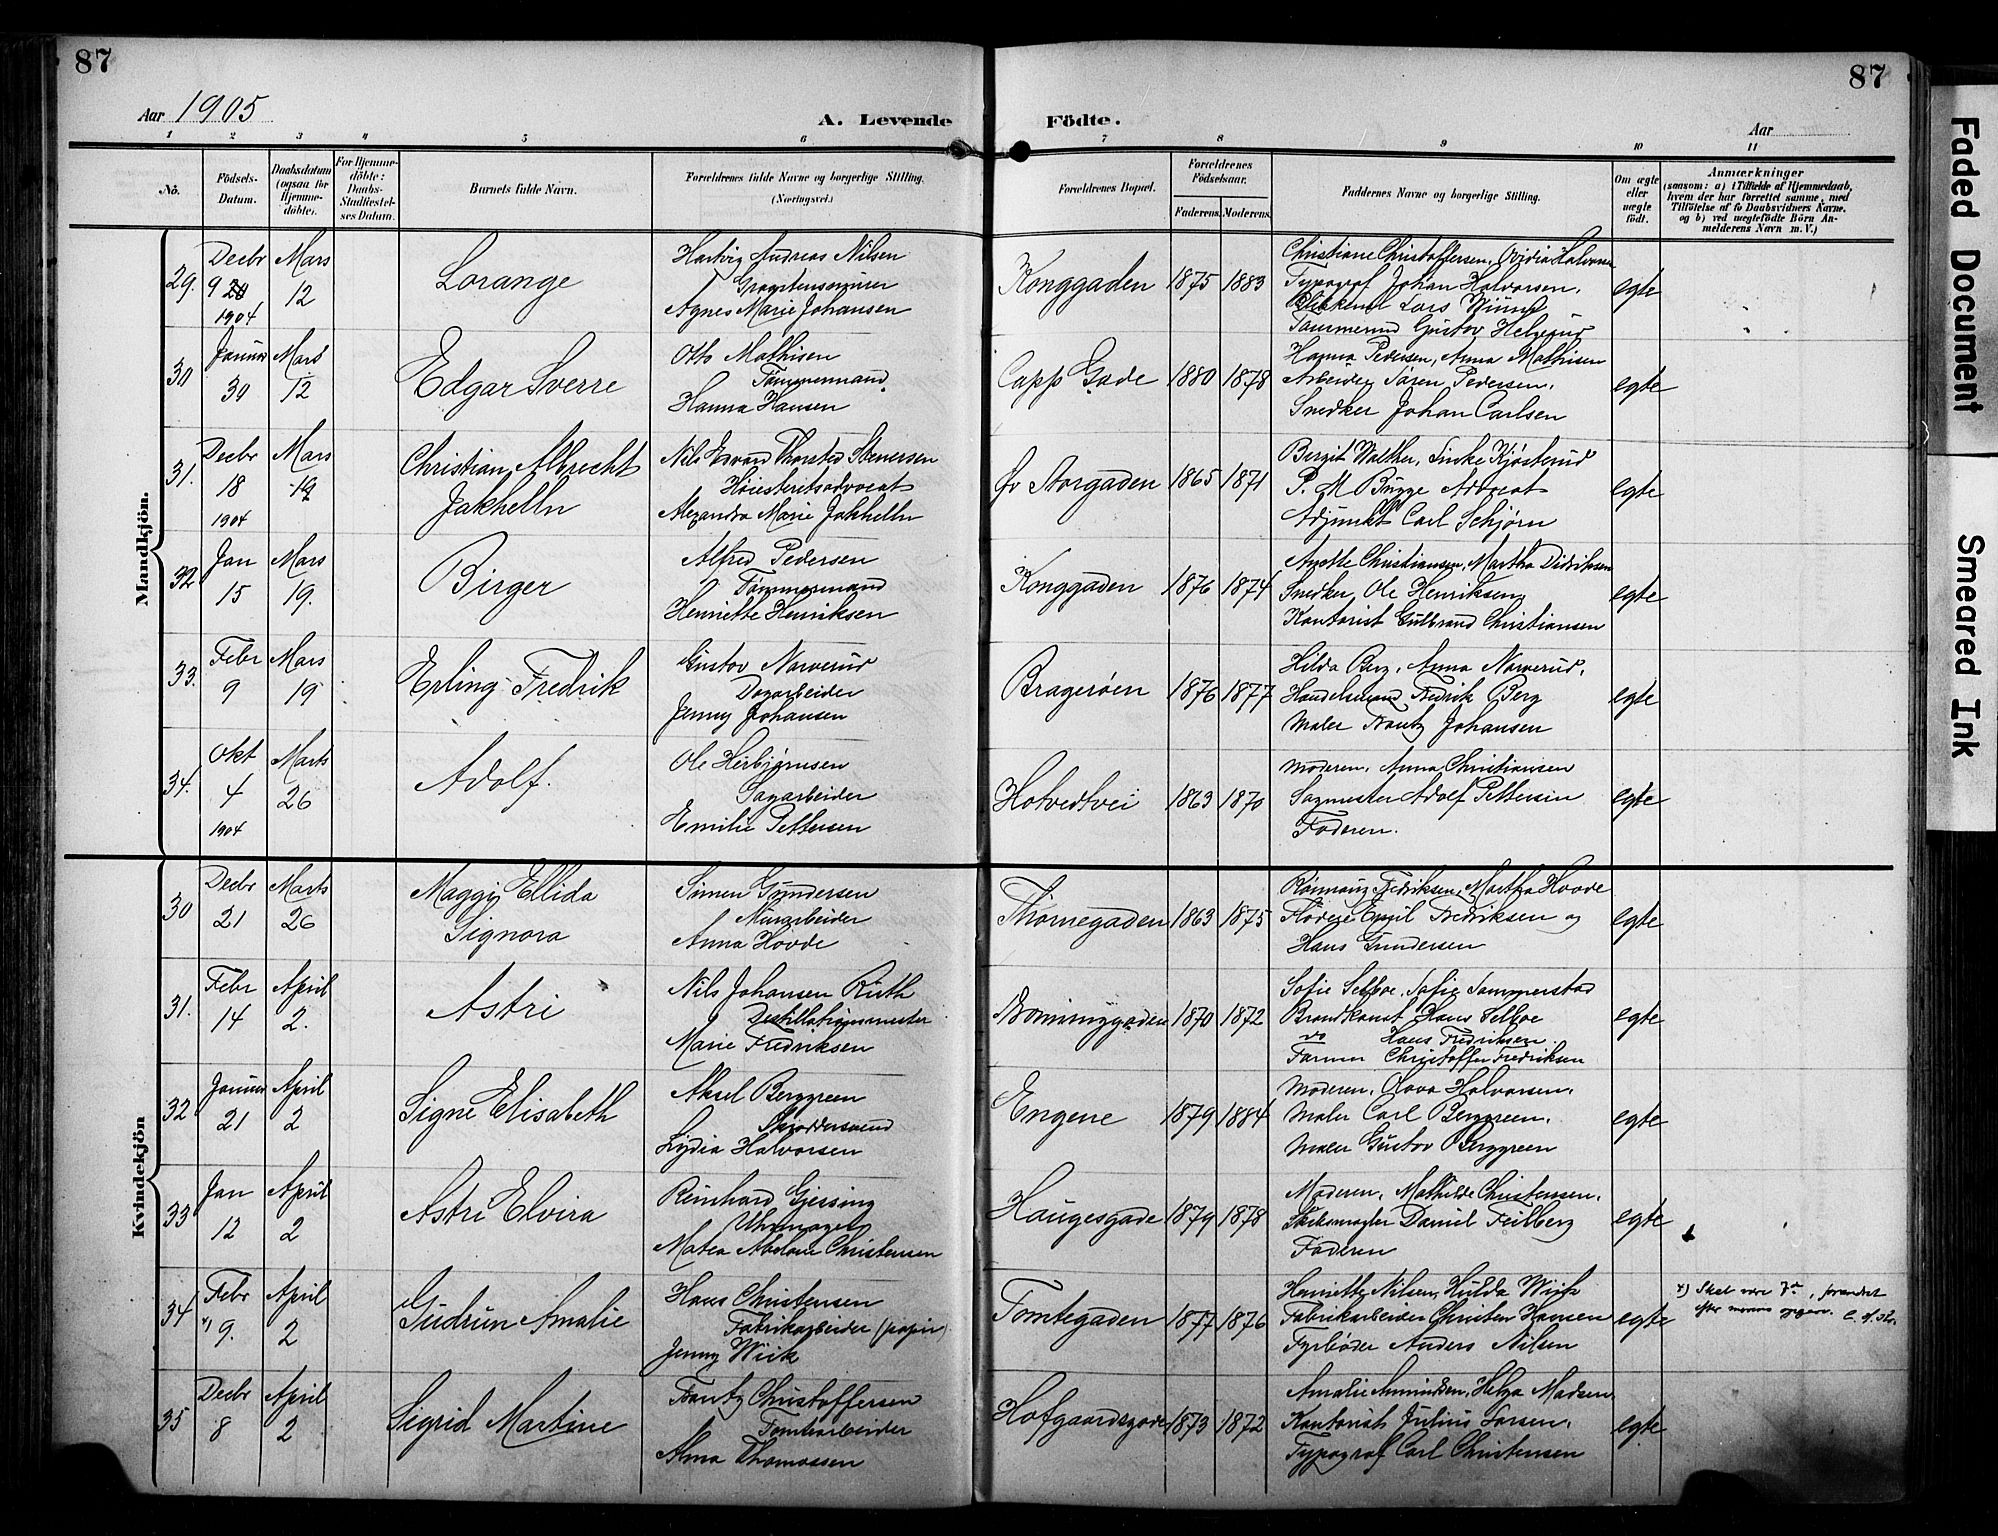 87
87
Aar 1905
A. Levende Födte.
Aar
1 2 3 4 5 6 7 8 9 10 11
No.
Födsels-Datum.
Daabsdatum (ogsaa for Hjemme-döbte).
For Hjemme-döbte: Daabs-Stadfæstel-ses Datum.
Barnets fulde Navn.
Forældrenes fulde Navne og borgerlige Stilling.
(Næringsvei.)
Forældrenes Bopæl.
Forældrenes Födselsaar.
Faderens. Moderens.
Faddernes Navne og borgerlige Stilling.
Om ægte eller uægte födt.
Anmærkninger
(saasom: a) i Tilfælde af Hjemmedaab, hvem der har forrettet samme, med Tilföielse af to Daabsvidners Navne. og b) ved uægtefödte Börn An-melderens Navn m. V.)
Mandkjön.
29. Decbr 9 1904 Mars 12 Lorange
Hartvig Andreas Nilsen
Graastensmurer
Agnes Marie Johansen
Konggaden 1875 1883
Christiane Christoffersen, Ovidia Halvorsen
Typograf Johan Halvorsen,
Lars
Tømmermd Gustav Helgerud
egte
30 Januar 30 Mars 12 Edgar Sverre
Otto Mathisen
Tømmermand
Hanna Hansen
Capp. Gade 1880 1878
Hanna Pedersen, Anna Mathisen
Arbeider Søren Pedersen,
Snedker Johan Carlsen
egte
31. Decbr 18 1904 Mars 19 Christian Albrecht
Jakhelln
Nils Edvard Thorsted Stenersen
Høiesteretsadvocat
Alexandra Marie Jakhelln
Øv Storgaden 1865 1871
Bergit Walther, Kjøsterud
P. M Bugge Advocat
Adjunkt Carl Schjørn
egte
32. Jan 15 Mars 19. Birger
Alfred Pedersen
Tømmermand
Henriette Henriksen
Konggaden 1876 1874
Anette Christiansen, Martha Didriksen
Snedker Ole Henriksen,
Kontorist Gulbrand Christiansen
egte
33. Febr 9 Mars 19 Erling Fredrik
Gustav Narverud
Dagarbeider
Jenny Johansen
Bragerøen 1876 1877
Hilda Berg, Anna Narverud,
Handelsmand Fredrik Berg
Maler Frantz Johansen
egte
34. Okt 4 1904 Marts 26 Adolf.
Ole Herbjørnsen
Sagarbeider
Emilie Pettersen
Hotvedtvei 1863 1870
Moderen, Anna Christiansen
Sagmester Adolf Pettersen
Faderen.
egte
Kvindekjön
30 Decbr 21 Marts 26 Maggij Ellida
Signora
Simen Gundersen
Murarbeider
Anna Hovde
Thornegaden 1863 1875
Rønnaug Fredriksen, Martha Hovde
Fløder Emil Fredriksen og
Hans Gundersen
egte
31. Febr 14 April 2. Astri
Nils Johansen Ruth
Destillationsmester
Marie Fredriksen
1870 1872
Sofie Selboe, Sofie Sommerstad
Brandkonst Hans Selboe
do Hans Fredriksen
Farmer Christoffer Fredriksen
egte
32 Januar 21 April 2 Signe Elisabeth
Aksel Berggreen
Skræddersvend
Lydia Halvorsen
Engene 1879 1884
Moderen, Olava Halvorsen,
Maler Carl Berggreen,
Maler Gustav Berggreen
egte
33 Jan 12 April 2 Astri Elvira
Reinhard Gjessing
Uhrmager
Matea Abelone Christensen
Haugesgade 1879 1878
Moderen, Mathilde Christensen,
Daniel Feilberg
Faderen
egte
34 Febr x) 9. April 2 Gudrun Amalie
Hans Christensen
Fabrikarbeider (papir)
Jenny Wiik
Tomtegaden 1877 1876
Henriette Nilsen, Hulda Wiik
Fabrikarbeider Christen Hansen
Fyrbøder Anders Nilsen
egte
x) Skal være 7de, forandret
efter moderens opgave.
35 Decbr 8 April 2 Sigrid Martine
Frantz Christoffersen
Tomtearbeider
Alma Thomassen
Hofgaardsgade 1873 1872
Amalie Amundsen, Helga Madsen
Kontorist Julius Larsen,
Typograf Carl Christensen
egte
Faded Document
Smeared Ink